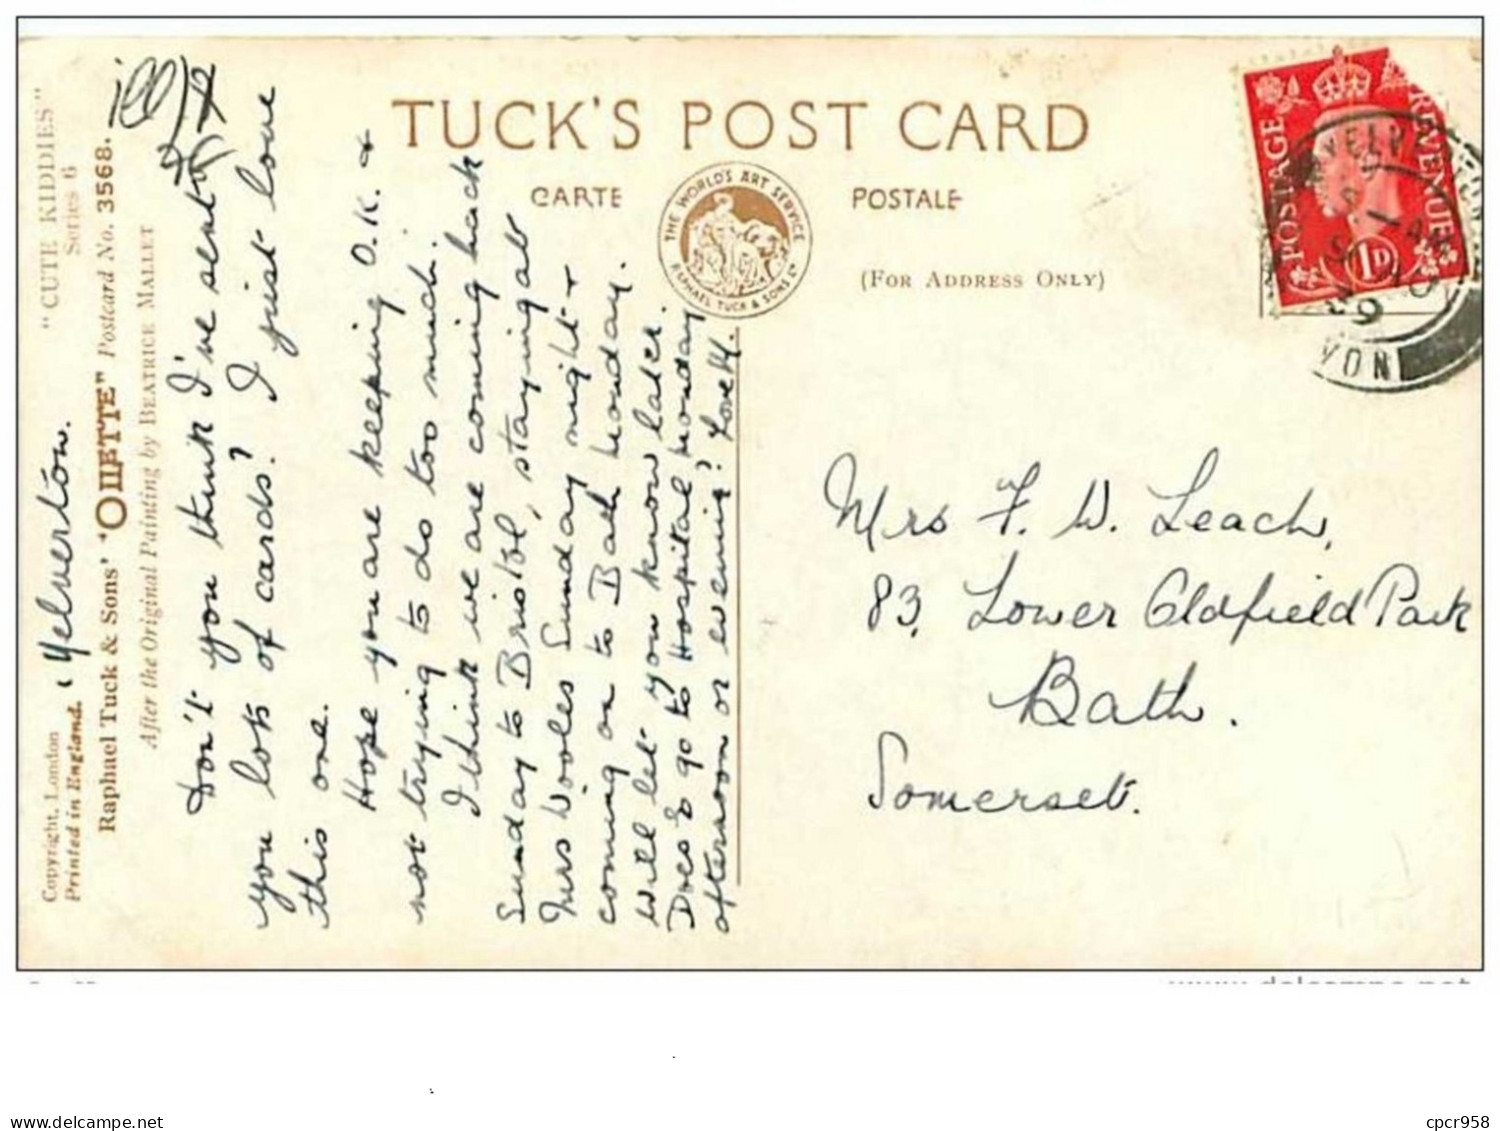 TUCK'S POST CARD
CARTE POSTALE
THE WORLD'S ART SERVICE
RAPHAEL TUCK & SONS LTD
(FOR ADDRESS ONLY)
POSTAGE REVENUE
1D
YELV
VON
Mrs F. W. Leach,
83, Lower Oldfield Park
Bath.
Somerset.
Copyright, London
Printed in England.
Yelverton.
"CUTE KIDDIES"
Series 6
Raphael Tuck & Sons' "OILETTE" Postcard No. 3568.
After the Original Painting by BEATRICE MALLET
Don't you think I've sent
you lots of cards? I just love
this one.
Hope you are keeping O.K. &
not trying to do too much.
I think we are coming back
Sunday to Bristol, staying at
Mrs Wooles Sunday night &
coming on to Bath Monday.
Will let you know later.
Does E go to Hospital Monday
afternoon or evening? Love M.
cpcr958